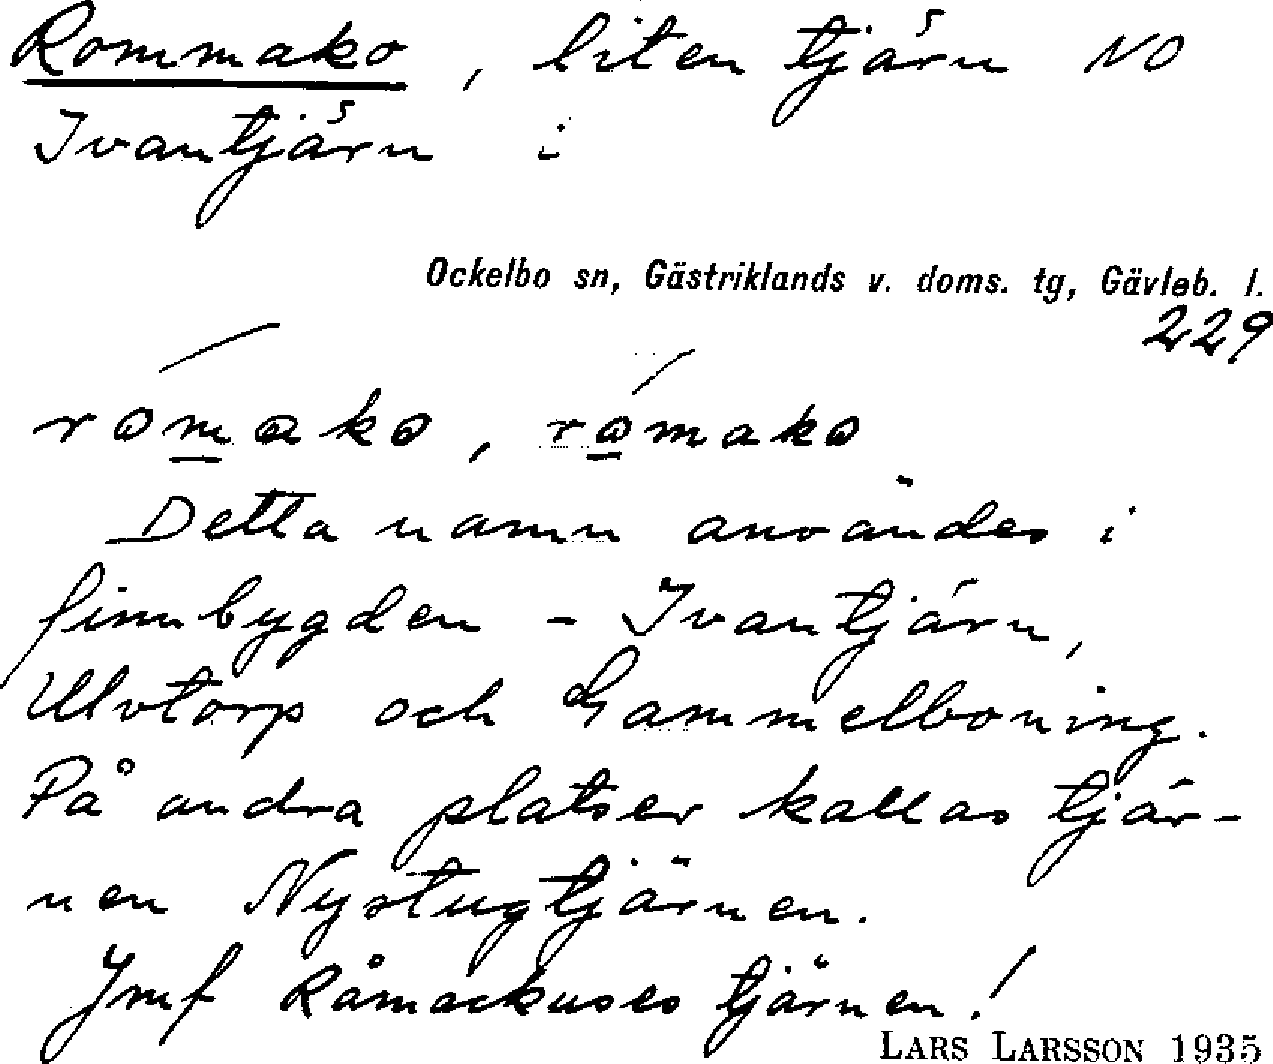 Rommako, liten tjärn NO
Ivantjärn i
Ockelbo sn, Gästriklands v. doms. tg, Gävleb. l.
229
rómako, rómako
Detta namn användes i
finnbygden - Ivantjärn,
Ulvtorp och Gammelboning.
På andra platser kallas tjär-
nen Nystugtjärnen.
Jmf Råmackuses tjärnen!
LARS LARSSON 1935